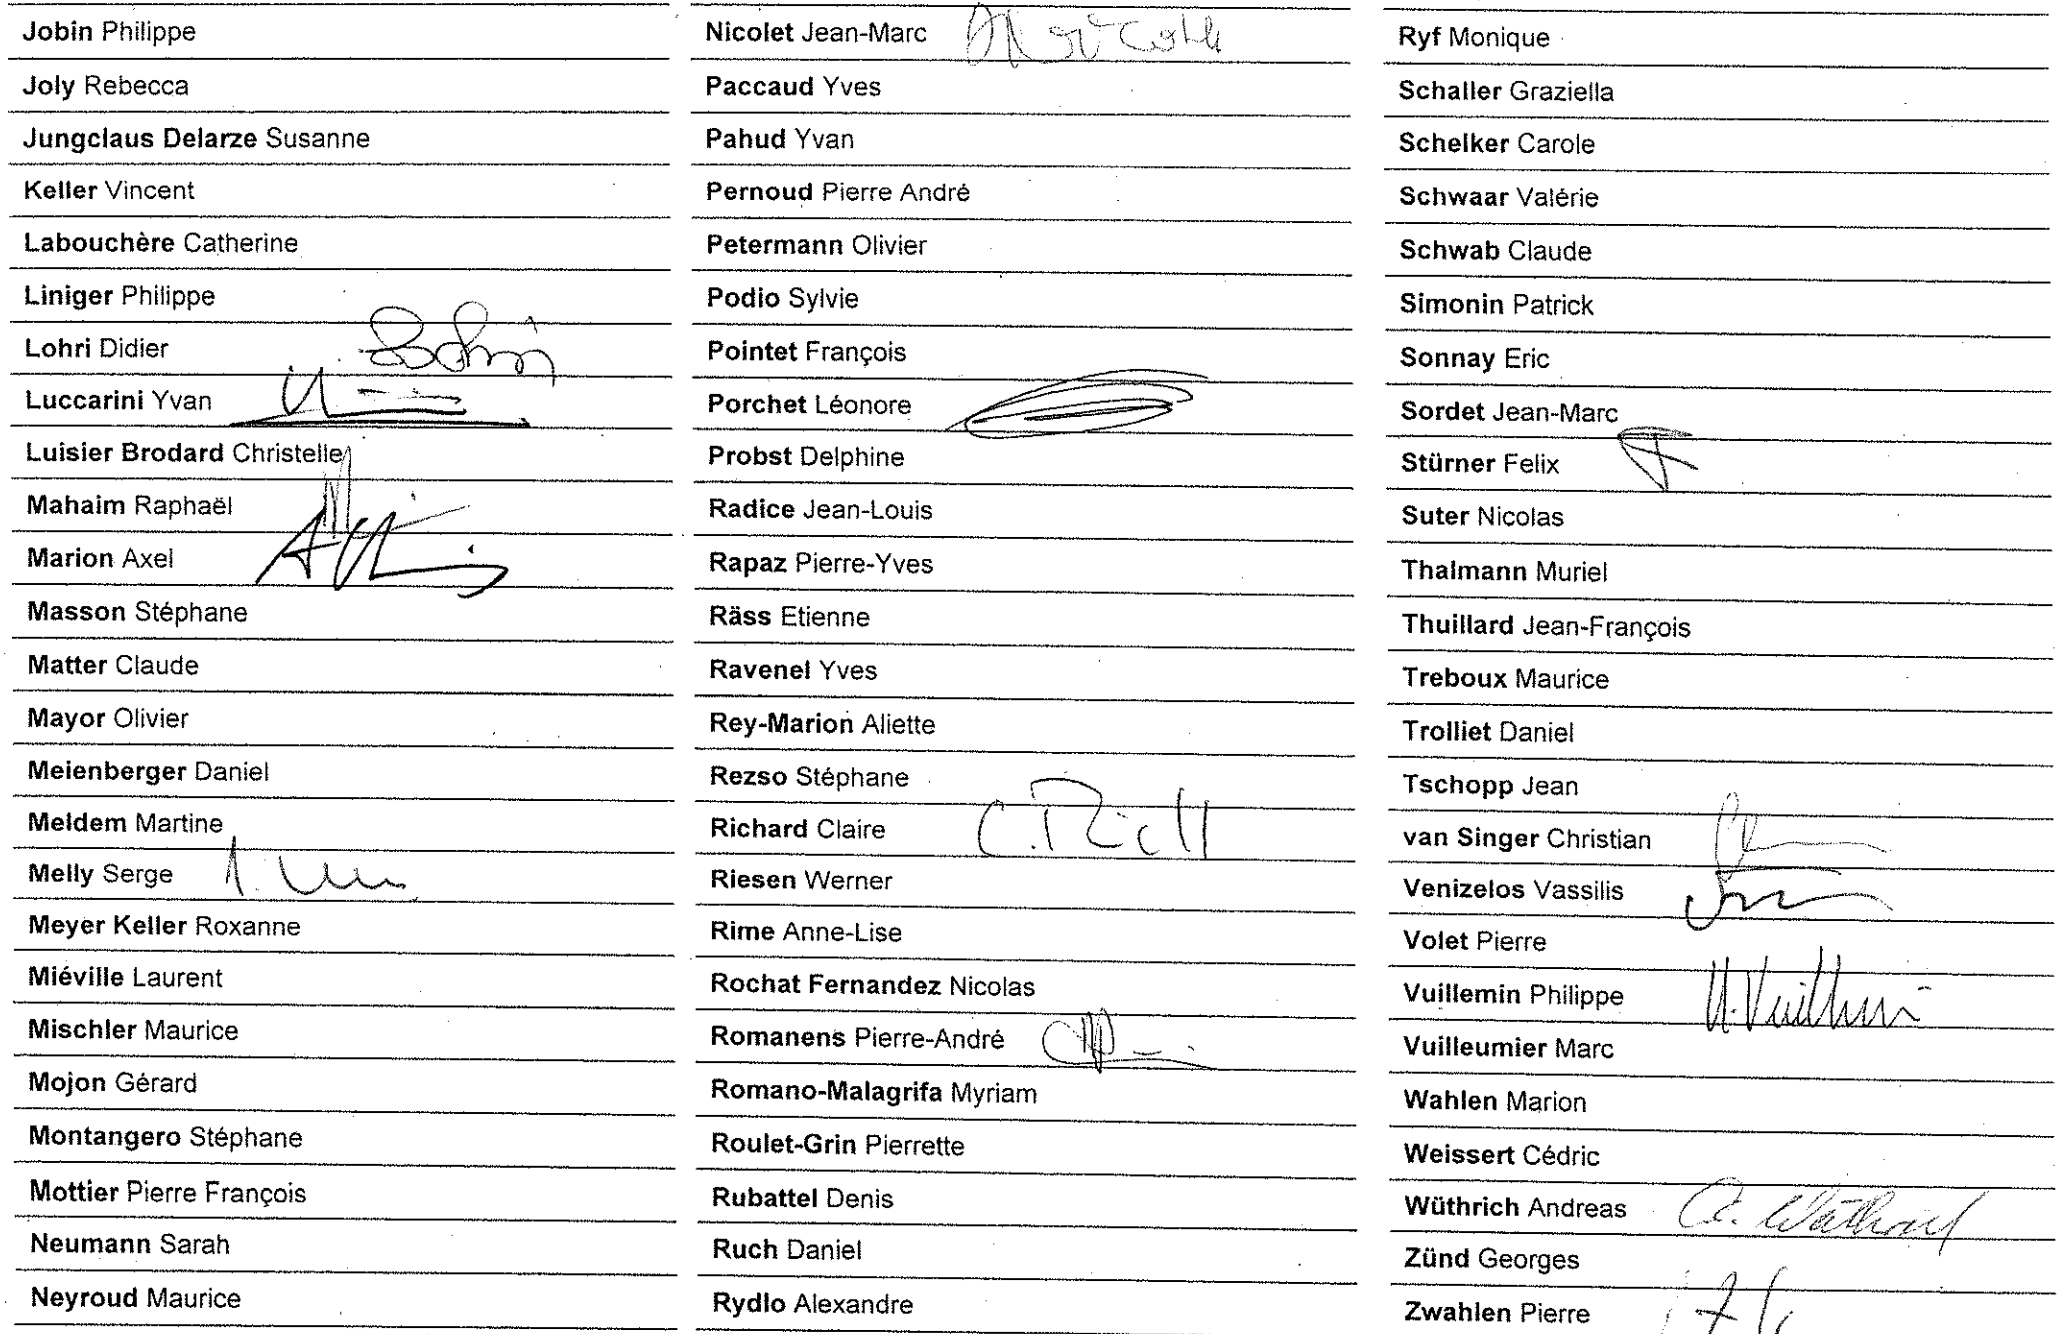 Jobin Philippe
Joly Rebecca
Jungclaus Delarze Susanne
Keller Vincent
Labouchère Catherine
Liniger Philippe
Lohri Didier Lohri
Luccarini Yvan
Luisier Brodard Christelle
Mahaim Raphaël
Marion Axel
Masson Stéphane
Matter Claude
Mayor Olivier
Meienberger Daniel
Meldem Martine
Melly Serge
Meyer Keller Roxanne
Miéville Laurent
Mischler Maurice
Mojon Gérard
Montangero Stéphane
Mottier Pierre François
Neumann Sarah
Neyroud Maurice
Nicolet Jean-Marc
Paccaud Yves
Pahud Yvan
Pernoud Pierre André
Petermann Olivier
Podio Sylvie
Pointet François
Porchet Léonore
Probst Delphine
Radice Jean-Louis
Rapaz Pierre-Yves
Räss Etienne
Ravenel Yves
Rey-Marion Aliette
Rezso Stéphane
Richard Claire
Riesen Werner
Rime Anne-Lise
Rochat Fernandez Nicolas
Romanens Pierre-André
Romano-Malagrifa Myriam
Roulet-Grin Pierrette
Rubattel Denis
Ruch Daniel
Rydlo Alexandre
Ryf Monique
Schaller Graziella
Schelker Carole
Schwaar Valérie
Schwab Claude
Simonin Patrick
Sonnay Eric
Sordet Jean-Marc
Stürner Felix
Suter Nicolas
Thalmann Muriel
Thuillard Jean-François
Treboux Maurice
Trolliet Daniel
Tschopp Jean
van Singer Christian
Venizelos Vassilis
Volet Pierre
Vuillemin Philippe
Vuilleumier Marc
Wahlen Marion
Weissert Cédric
Wüthrich Andreas A. Wüthrich
Zünd Georges
Zwahlen Pierre